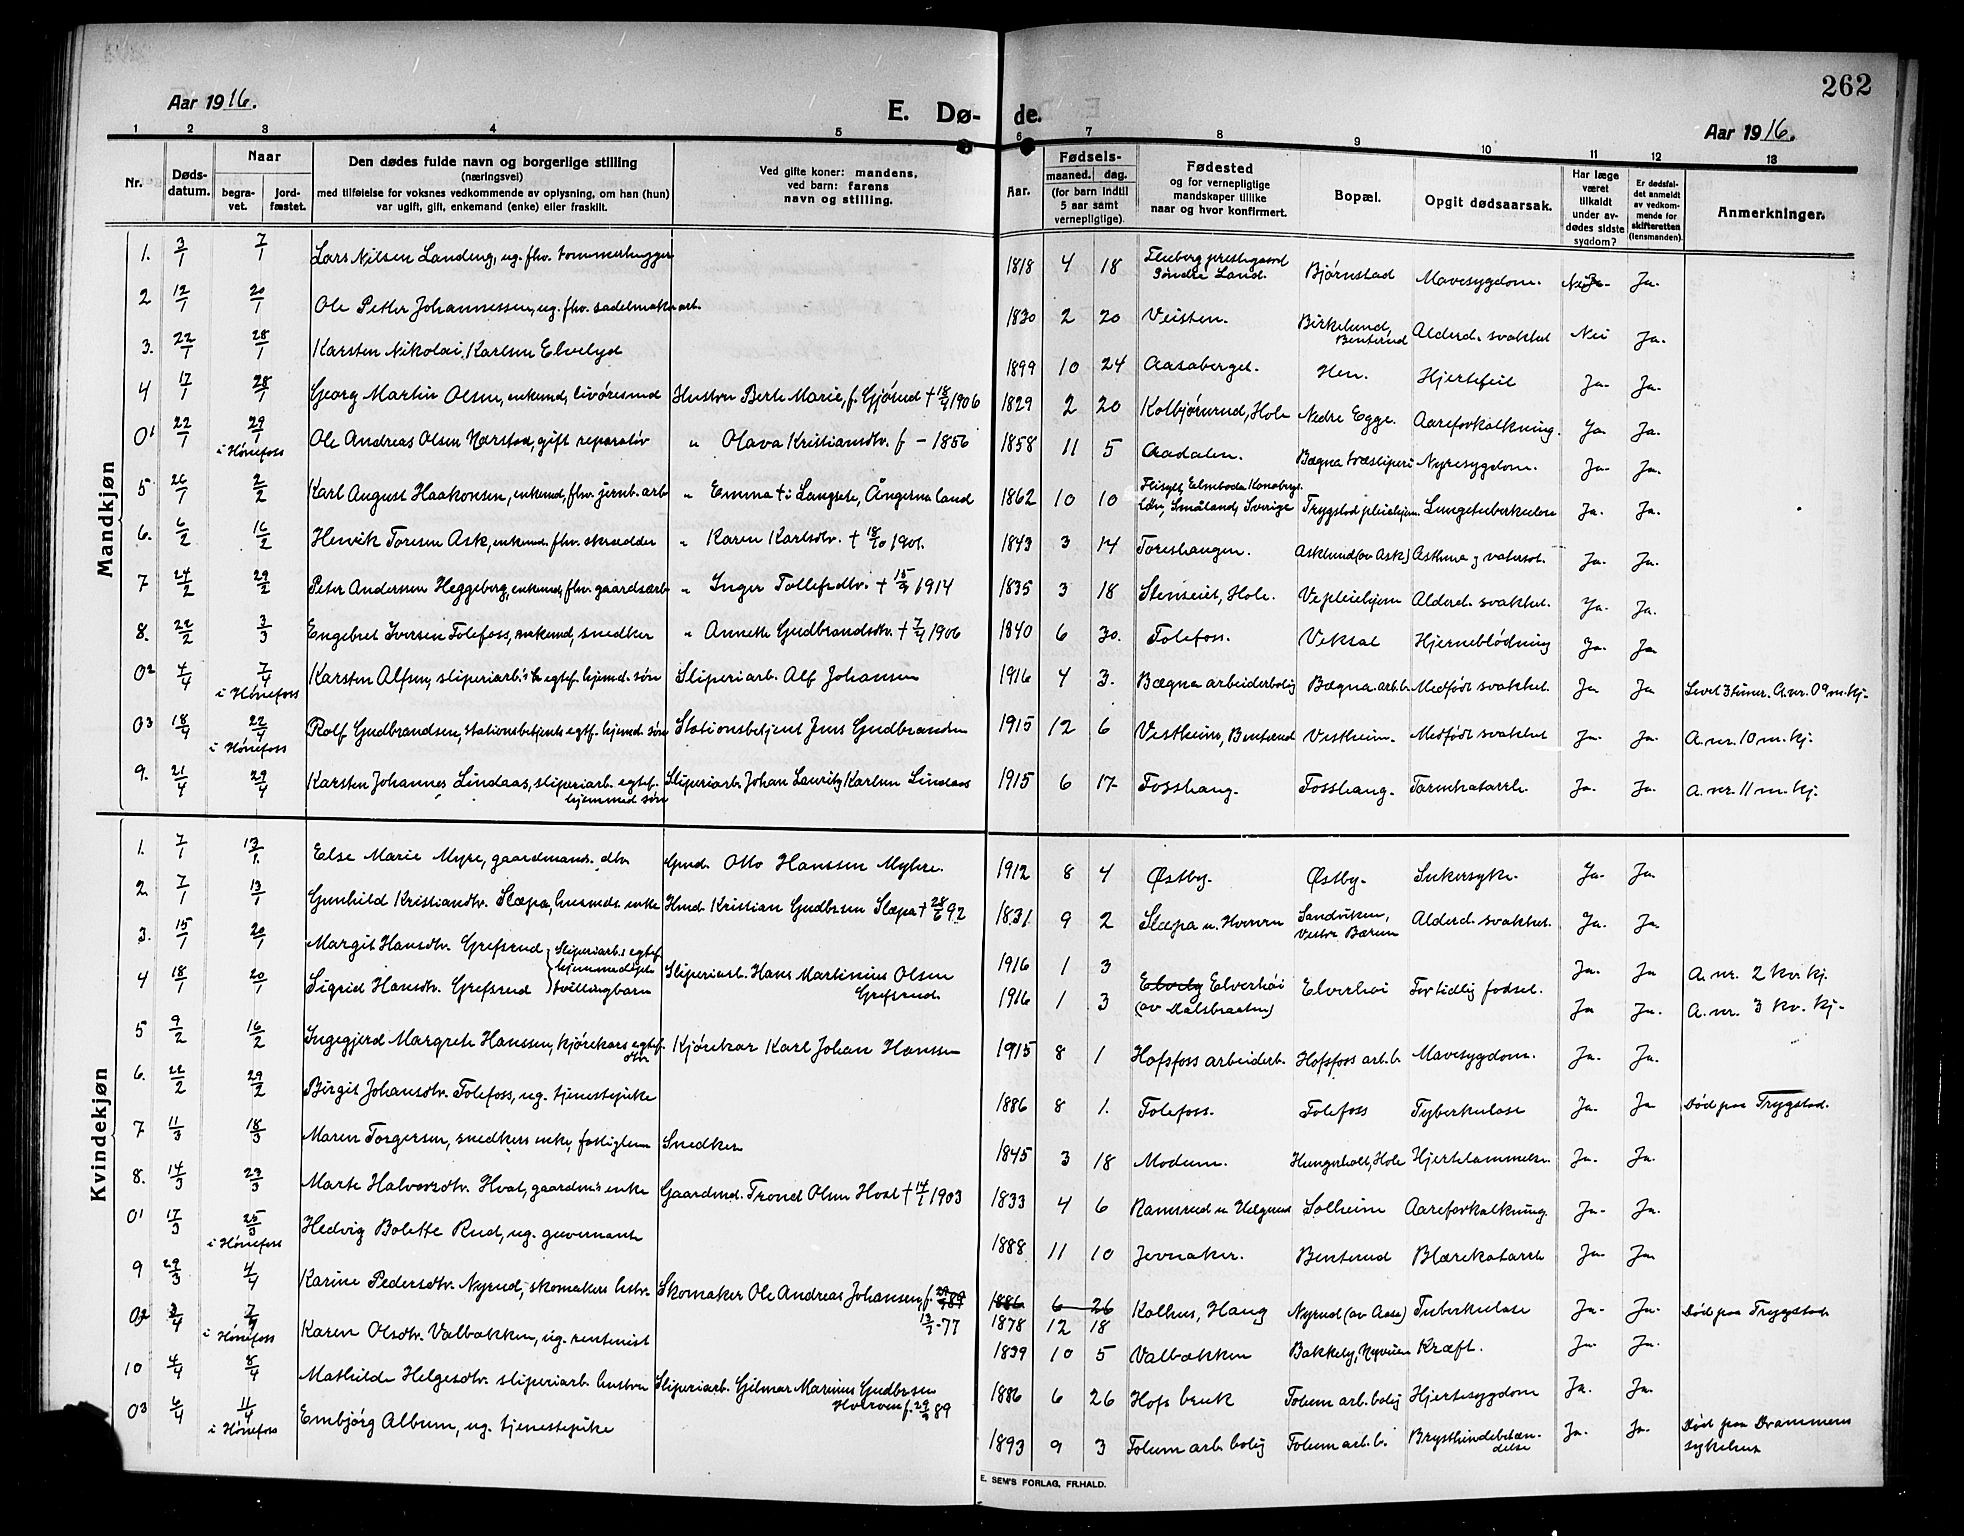 262
Aar 1916.
E. Dø- de.
Aar 1916.
1 2 3 4 5 6 7 8 9 10 11 12 13
Nr.
Døds-
datum.
Naar
begra-
vet.
jord-
fæstet.
Den dødes fulde navn og borgerlige stilling
(næringsvei)
med tilføielse for voksnes vedkommende av oplysning, om han (hun)
var ugift, gift, enkemand (enke) eller fraskilt.
Ved gifte koner: mandens,
ved barn: farens
navn og stilling.
Aar.
Fødsels-
maaned. dag.
(for barn indtil
5 aar samt
vernepligtige).
Fødested
og for vernepligtige
mandskaper tillike
naar og hvor konfirmert.
Bopæl.
Opgit dødsaarsak.
Har læge
været
tilkaldt
under av-
dødes sidste
sygdom?
Er dødsfal-
det anmeldt
av vedkom-
mende for
skifteretten
(lensmanden).
Anmerkninger.
Mandkjøn
1. 3/1 7/1 Lars Nilsen Landeng, ug. fhv. tømmerhugger 1818 4 18 Flueberg prestegaard Søndre Land. Bjørnstad Mavesygdom. Ja.
2 12/1 20/1 Ole Petter Johannessen, ug. fhv. sadelmakerarb. 1830 2 20 Veisten. Birkelund, Benterud Alderd. svakhet Nei Ja.
3. 22/1 28/1 Karsten Nikolai Karlsen Elvelyd 1899 10 24 Aasaberget. Hen. Hjertefeil Ja. Ja.
4 17/1 28/1 Georg Martin Olsen, enkemd, livøresmd Hustru Berte Marie, f. Gjørud † 18/9 1906 1829 2 20 Kolbjørnrud, Hole Nedre Egge. Aareforkalkning. Ja. Ja.
01 22/1 29/1 i Hønefoss Ole Andreas Olsen Nærstad, gift reparatør " Olava Kristiansdtr. f - 1856 1858 11 5 Aadalen. Bægna træsliperi Nyresygdom. Ja. Ja.
5 26/1 2/2 Karl August Haakonsen, enkemd, fhv. jernb. arb. " Emma † i Langsele, Ångermanland 1862 10 10 Småland, Sverige Trygstad pleiehjem. Lungetuberkulose Ja. Ja.
6. 6/2 16/2 Henrik Toresen Ask, enkemd. fhv. skrædder " Karen Karlsdtr. † 18/10 1901. 1843 3 14 Toreshaugen. Asklund (av Ask) Asthma og vatersot. Ja. Ja.
7 24/2 29/2 Peter Andersen Heggeberg, enkemd, fhv. gaardsarb. " Inger Tollefsdtr. † 15/3 1914 1835 3 18 Stenseiet, Hole. Ve pleiehjem Alderd. svakhet. Ja. Ja.
8. 22/2 3/3 Engebret Iversen Tolefoss, enkemd, snedker " Annette Gudbrandsdtr. † 7/9 1906 1840 6 30. Tolefoss. Veksal Hjerneblødning Ja. Ja
02 4/4 7/4 i Hønefoss Karsten Alfsen, sliperiarb.'s egtef. hjemmef. søn Sliperiarb. Alf Johansen 1916 4 3. Bægna arbeiderbolig Bægna. arb. b. Medfødt svakhet. Ja Ja Levet 3 timer. A. nr. 09 m. kj.
03 18/4 22/4 i Hønefoss Rolf Gudbrandsen, stationsbetjents egtf. hjemmef. søn Stationsbetjent Jens Gudbrandsen 1915 12 6 Vestheim, Benterud Vestheim. Medfødt svakhet Ja. Ja. A. nr. 10 m. kj.
9. 21/4 29/4 Karsten Johannes Lindaas, sliperiarb. egtef. hjemmef. søn Sliperiarb. Johan Lauritz Karlsen Lindaas 1915 6 17. Fosshaug. Fosshaug. Tarmkatarrh. Ja. Ja. A. nr. 11 m. kj.
Kvindekjøn
1. 7/1 13/1. Else Marie Myre, gaardmands dtr. Gmd. Otto Hanssen Myhre. 1912 8 4 Østby. Østby. Sukersyke. Ja. Ja.
2 7/1 13/1 Gunhild Kristiansdtr. Slæpa, husmds. enke Hmd. Kristian Gudbrsen Slæpa † 28/6 92 1831. 9 2 Slæpa u. Hverven Sandviken, Vestre Bærum Alderd. svakhet. Ja. Ja.
3. 15/1 20/1 Margit Hansdtr. Grefsrud Sliperiarb.s egtef. hjemmefødte tvillingbarn Sliperiarb. Hans Martinius Olsen Grefsrud. 1916 1 3 Elverhøi (av Malsbraaten) Elverhøi For tidlig fødsel. Ja. Ja A. nr. 2 kv. kj.
4 18/1 20/1 Sigrid Hansdtr. Grefsrud 1916 1 3 Ja Ja. A. nr. 3 kv. kj.
5 9/2 16/2 Ingegjerd Margrete Hanssen, kjørekars egtef. dtr. Kjørekar Karl Johan Hanssen 1915 8 1 Hofsfoss arbeiderb. Hofsfoss arb. b. Mavesygdom. Ja. Ja.
6. 22/2 29/2 Birgit Johansdtr. Tolefoss, ug. tjenestepike 1886 8 1. Tolefoss. Tolefoss Tyberkulose Ja. Ja Død paa Trygstad.
7 11/3 18/3 Maren Torgersen, snedkers enke, fattiglem Snedker 1845 3 18 Modum. Hungerholt, Hole Hjertelammelse. Ja. Ja.
8. 14/3 23/3 Marte Halvorsdtr. Hval, gaardm's enke Gaardmd. Trond Olsen Hval † 14/1 1903 1833 4 6 Ramsrud u Helgerud Solheim Aareforkalkning. Ja. Ja.
01 17/3 25/3 i Hønefoss Hedvig Bolette Rud, ug. guvernante 1888 11 10 Jevnaker. Benterud Blærekatarrh Ja. Ja.
9 29/3 4/4 Karine Pedersdtr. Nyrud, skomakers hustr. Skomaker Ole Andreas Johansen, f. 13/7-77 1886 6 26 1878 12 18 Kolhus, Haug Nyrud (av Aase) Tuberkulose Ja. Ja. Død paa Trygstad
02 3/4 7/4 i Hønefoss Karen Olsdtr. Valbækken, ug. rentenist 1839 10 5 Valbækken Bakkely, Kræft. Ja. Ja.
10 4/4 8/4 Mathilde Helgesdtr. sliperiarb. hustru Sliperiarb. Gilmar Marinius Gudbrsen Hverven f. 29/9 89 1886 6 26 Hofs bruk Tolum arb. bolig Hjertesygdom Ja. Ja.
03 6/4 11/4 i Hønefoss Embjørg Album, ug. tjenestepike 1893 9 3 Tolum arb. bolig Tolum arb. b. Brysthindebetændelse Ja. Ja. Død paa Drammens sykehus
E. SEM'S FORLAG, FR.HALD.